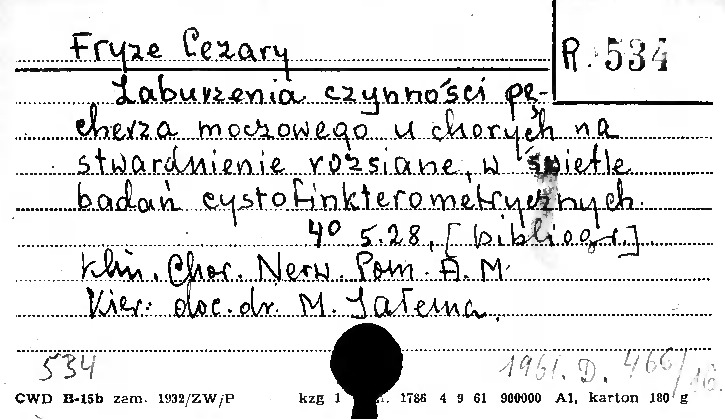 Fryze Cezary
R. 534
Zaburzenia czynności pę-
cherza moczowego u chorych na
stwardnienie rozsiane, w świetle
badań cystosfinkterometrycznych.
4° s. 28, [bibliogr.]
Klin. Chor. Nerw. Pom. A.M.
Kier. doc. dr. M. Jałema.
534
1961. D. 466/16.
CWD B-15b zam. 1932/ZW/P
kzg 1 1786 4 9 61 900000 A1, karton 180 g